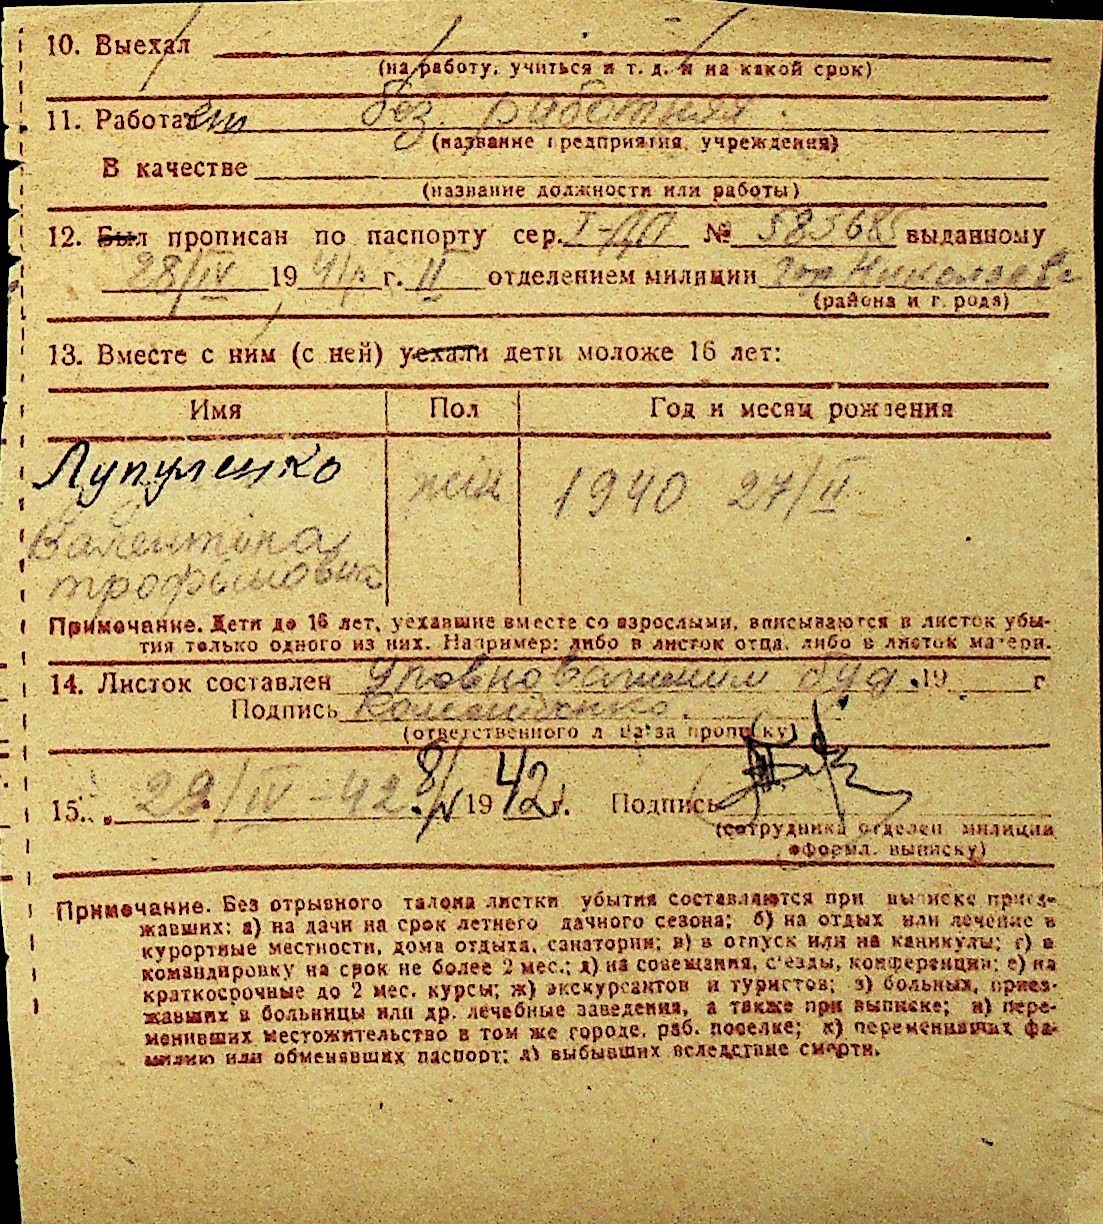 10. Выехал
(на работу, учиться и т. д. и на какой срок)
11. Работает без работная.
(название предприятия, учреждения)
В качестве
(название должности или работы)
12. Был прописан по паспорту сер. I-ДП № 585685 выданному
28/IV 1941 г. II отделением милиции гор Николаева
(района и города)
13. Вместе с ним (с ней) уехали дети моложе 16 лет:
Имя Пол Год и месяц рождения
Лупуленко жін 1940 27/II
Валентіна
трофымовна
Примечание. Дети до 16 лет, уехавшие вместе со взрослыми, вписываются в листок убы-
тия только одного из них. Например: либо в листок отца, либо в листок матери.
14. Листок составлен Уповноваженим буд. 19 г
Подпись
(ответственного лица за прописку)
15. 29/IV-42. 8/V 1942 г. Подпись
(сотрудника отделен. милиции
оформл. выписку)
Примечание. Без отрывного талона листки убытия составляются при выписке приез-
жавших: а) на дачи на срок летнего дачного сезона; б) на отдых или лечение в
курортные местности, дома отдыха, санатории; в) в отпуск или на каникулы; г) в
командировку на срок не более 2 мес.; д) на совещания, с'езды, конференции; е) на
краткосрочные до 2 мес. курсы; ж) экскурсантов и туристов; з) больных, приез-
жавших в больницы или др. лечебные заведения, а также при выписке; и) пере-
менивших местожительство в том же городе, раб. поселке; к) переменивших фа-
милию или обменявших паспорт; л) выбывших вследствие смерти.